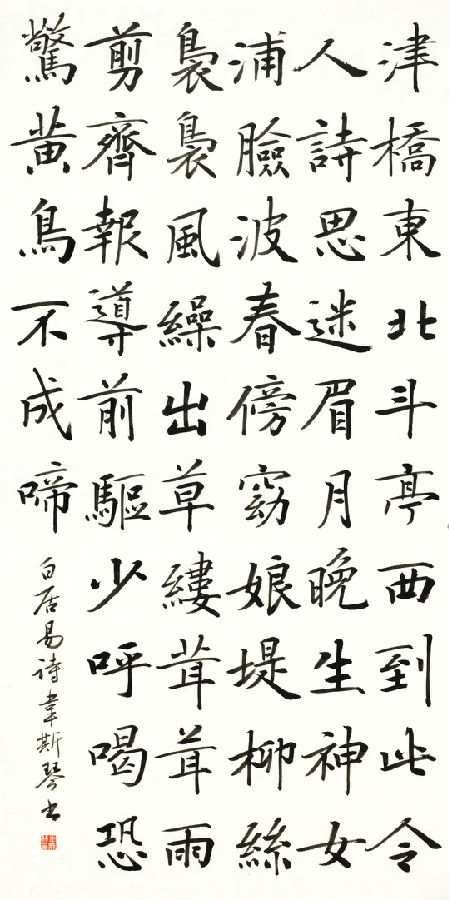 津橋東北斗亭西到此令
人詩思迷眉月晚生神女
浦臉波春傍窈娘堤柳絲
裊裊風繰出草縷茸茸雨
剪齊報導前驅少呼喝恐
驚黄鳥不成啼
白居易诗韋斯琴书